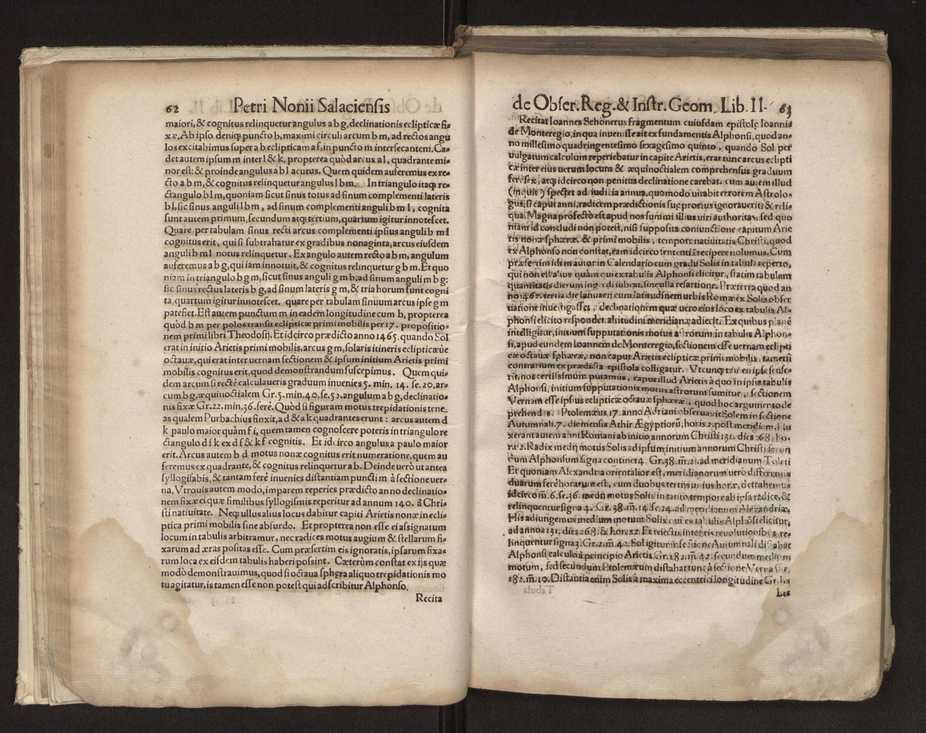 62 Petri Nonii Salaciensis
maiori, & cognitus relinquetur angulus a b g, declinationis eclipticæ fi-
xæ. Ab ipso deniq; puncto b, maximi circuli arcum b m, ad rectos angu
los excitabimus super a b eclipticam a f, in puncto m intersecantem. Ca-
det autem ipsum m inter l & k, propterea quòd arcus a l, quadrante mi-
nor est: & proinde angulus a b l acutus. Quem quidem auferemus ex re-
cto a b m, & cognitus relinquetur angulus l b m. In triangulo itaq; re-
ctangulo b l m, quoniam sicut sinus totus ad sinum complementi lateris
b l, sic sinus anguli l b m, ad sinum complementi anguli b m l, cognita
sunt autem primum, secundum atq; tertium, quartum igitur innotescet.
Quare per tabulam sinus recti arcus complementi ipsius anguli b m l
cognitus erit, qui si subtrahatur ex gradibus nonaginta, arcus eiusdem
anguli b m l notus relinquetur. Ex angulo autem recto a b m, angulum
auferemus a b g, qui iam innotuit, & cognitus relinquetur g b m. Et quo
niam in triangulo b g m, sicut sinus anguli g m b, ad sinum anguli m b g:
sic sinus rectus lateris b g, ad sinum lateris g m, & tria horum sunt cogni
ta, quartum igitur innotescet. quare per tabulam sinuum arcus ipse g m
patefiet. Est autem punctum m in eadem longitudine cum b, propterea
quòd b m per polos transit eclipticæ primi mobilis per 17. propositio-
nem primi libri Theodosii. Et idcirco prædicto anno 1465. quando Sol
erat in initio Arietis primi mobilis, arcus g m, solaris itineris eclipticæúe
octauæ, qui erat inter uernam sectionem & ipsum initium Arietis primi
mobilis cognitus erit, quod demonstrandum suscepimus. Quem qui-
dem arcum si rectè calculaueris graduum inuenies 5. min. 14. se. 20, ar-
cum b g, æquinoctialem Gr. 5. min. 40. se. 52. angulum a b g, declinatio-
nis fixæ Gr. 22. min. 36. ferè. Quòd si figuram motus trepidationis tene-
as qualem Purbachius finxit, a d & a k quadrantes erunt: arcus autem d
k paulo maior quàm f i, quem tamen cognoscere poteris in triangulo re
ctangulo d f k ex d f & k f cognitis. Et idcirco angulus a paulo maior
erit. Arcus autem b d motus nonæ cognitus erit numeratione, quem au
feremus ex quadrante, & cognitus relinquetur a b. Deinde uerò ut antea
syllogisabis, & tantam ferè inuenies distantiam puncti m à sectione uer-
na, Vtrouis autem modo, imparem reperies prædicto anno declinatio-
nem fixæ ei quæ similibus syllogismis reperitur ad annum 140. à Chri-
sti natiuitate. Neq; ullus alius locus dabitur capiti Arietis nonæ in eclip
tica primi mobilis sine absurdo. Et propterea non esse ei assignatum
locum in tabulis arbitramur, nec radices motus augium & stellarum fi-
xarum ad æras positas esse. Cum præsertim eis ignoratis, ipsarum fixa-
rum loca ex eisdem tabulis haberi possint. Cæterùm constat ex iis quæ
modò demonstrauimus, quod si octaua sphæra aliquo trepidationis mo
tu agitatur, is tamen esse non potest qui adscribitur Alphonso.
Recita
de Obser. Reg. & Instr. Geom. Lib. II. 63
Recitat Ioannes Schönerus fragmentum cuiusdam epistolę Ioannis
de Monteregio, in qua inuenisse ait ex fundamentis Alphonsi, quod an-
no millesimo quadringentesimo sexagesimo quinto, quando Sol per
uulgatum calculum reperiebatur in capite Arietis, erat tunc arcus eclipti
cæ inter eius uerum locum & æquinoctialem comprehensus graduum
ferè sex, atq; idcirco non penitus declinatione carebat. cum autem illud
(inquit) spectet ad iudicia annua, quo modo uitabit errorem Astrolo-
gus, si caput anni, radicem prædictionis suę prorsus ignorauerit & reli-
qua. Magna profectò est apud nos summi illius uiri authoritas, sed quo
niam id concludi non potest, nisi supposita coniunctione capitum Arie
tis nonæ sphæræ & primi mobilis, tempore natiuitatis Christi, quod
ex Alphonso non constat, eam idcirco sententiam recipere nolumus. Cum
præsertim idem author in Calendario cum gradu Solis in tabula reperto,
qui non est alius quàm qui ex tabulis Alphonsi elicitur, statim tabulam
quantitatis dierum ingredi iubeat, sine ulla restitutione. Præterea quod an
no 1467. tertia die Ianuarii cum latitudinem urbis Romæ ex Solis obser
uatione inuestigasset, declinationem quæ uero eius loco ex tabulis Al-
phonsi elicito respondet altitudini meridianæ adiecit. Ex quibus planè
intelligitur, initium supputationis motus astrorum in tabulis Alphon-
si, apud eundem Ioannem de Monteregio, sectionem esse uernam eclipti
cæ octauæ sphæræ, non caput Arietis eclipticæ primi mobilis, tametsi
contrarium ex prædicta epistola colligatur. Vtcunq; tamen ipse sense-
rit, nos certissimum putamus, caput illud Arietis à quo in ipsis tabulis
Alphonsi, initium supputationis motus astrorum sumitur, sectionem
Vernam esse ipsius eclipticæ octauæ sphæræ, quod hoc argumento de
prehendes. Ptolemæus 17. anno Adriani obseruauit Solem in sectione
Autumnali, 7. die mensis Athir Ægyptiorũ, horis 2. post meridiem. Flu
xerant autem anni Romani ab initio annorum Christi 131. dies 268. ho-
ræ 2. Radix medij motus Solis ad ipsum initium annorum Christi secun
dum Alphonsum signa continet 4. Gr. 38. m̃. 21. ad meridianum Toleti
Et quoniam Alexandria orientalior est, meridianorum uerò differentia
duarum ferè horarum est, cum duobus tertiis unius horæ, detrahemus
idcirco m̃. 6. se. 36. medii motus Solis in tanto tempore ab ipsa radice, &
relinquentur signa 4. Gr. 38. m̃. 14. se. 24. ad meridianum Alexandriæ.
His adiungemus medium motum Solis qui ex tabulis Alphonsi elicitur,
ad annos 131. dies 268. & horas 2. Et reiectis integris reuolutionibus, re-
linquentur signa 3. Gr. 2. m̃. 42. Sol igitur in sectione Autumnali distabat
Alphonsi calculo à principio Arietis Gr. 182. m̃. 42. secundum medium
motum, sed secundum Ptolemæum distabat tunc à sectione Verna Gr.
182. m̃. 10. Distantia enim Solis à maxima eccentrici longitudine Gr.